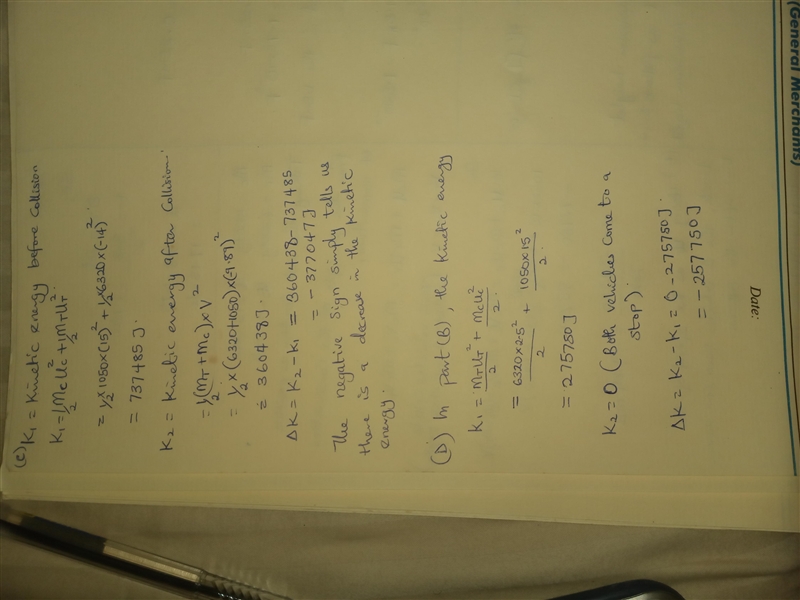 (General Merchants)
Date:
(C) K₁ = Kinetic energy before Collision
K₁ = ½McUc² + ½MTUT²
= ½ × 1050 × (15)² + ½ × 6320 × (-14)².
= 737485 J.
K₂ = Kinetic energy after Collision.
= ½(MT + Mc) × V²
= ½ × (6320 + 1050) × (-9.89)²
= 360438 J.
ΔK = K₂ - K₁ = 360438 - 737485
= -377047 J
The negative Sign simply tells us
there is a decrease in the Kinetic
energy.
(D) In part (B), the Kinetic energy
K₁ = MTUT²/2 + McUc²/2
= 6320 × 2.5²/2 + 1050 × 15²/2.
= 275750 J
K₂ = 0 (Both vehicles come to a
stop).
ΔK = K₂ - K₁ = 0 - 275750 J.
= -257750 J